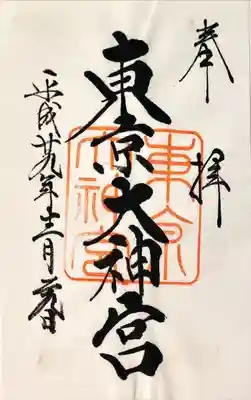 奉拝
東京大神宮
平成廿九年十二月
東京大神宮